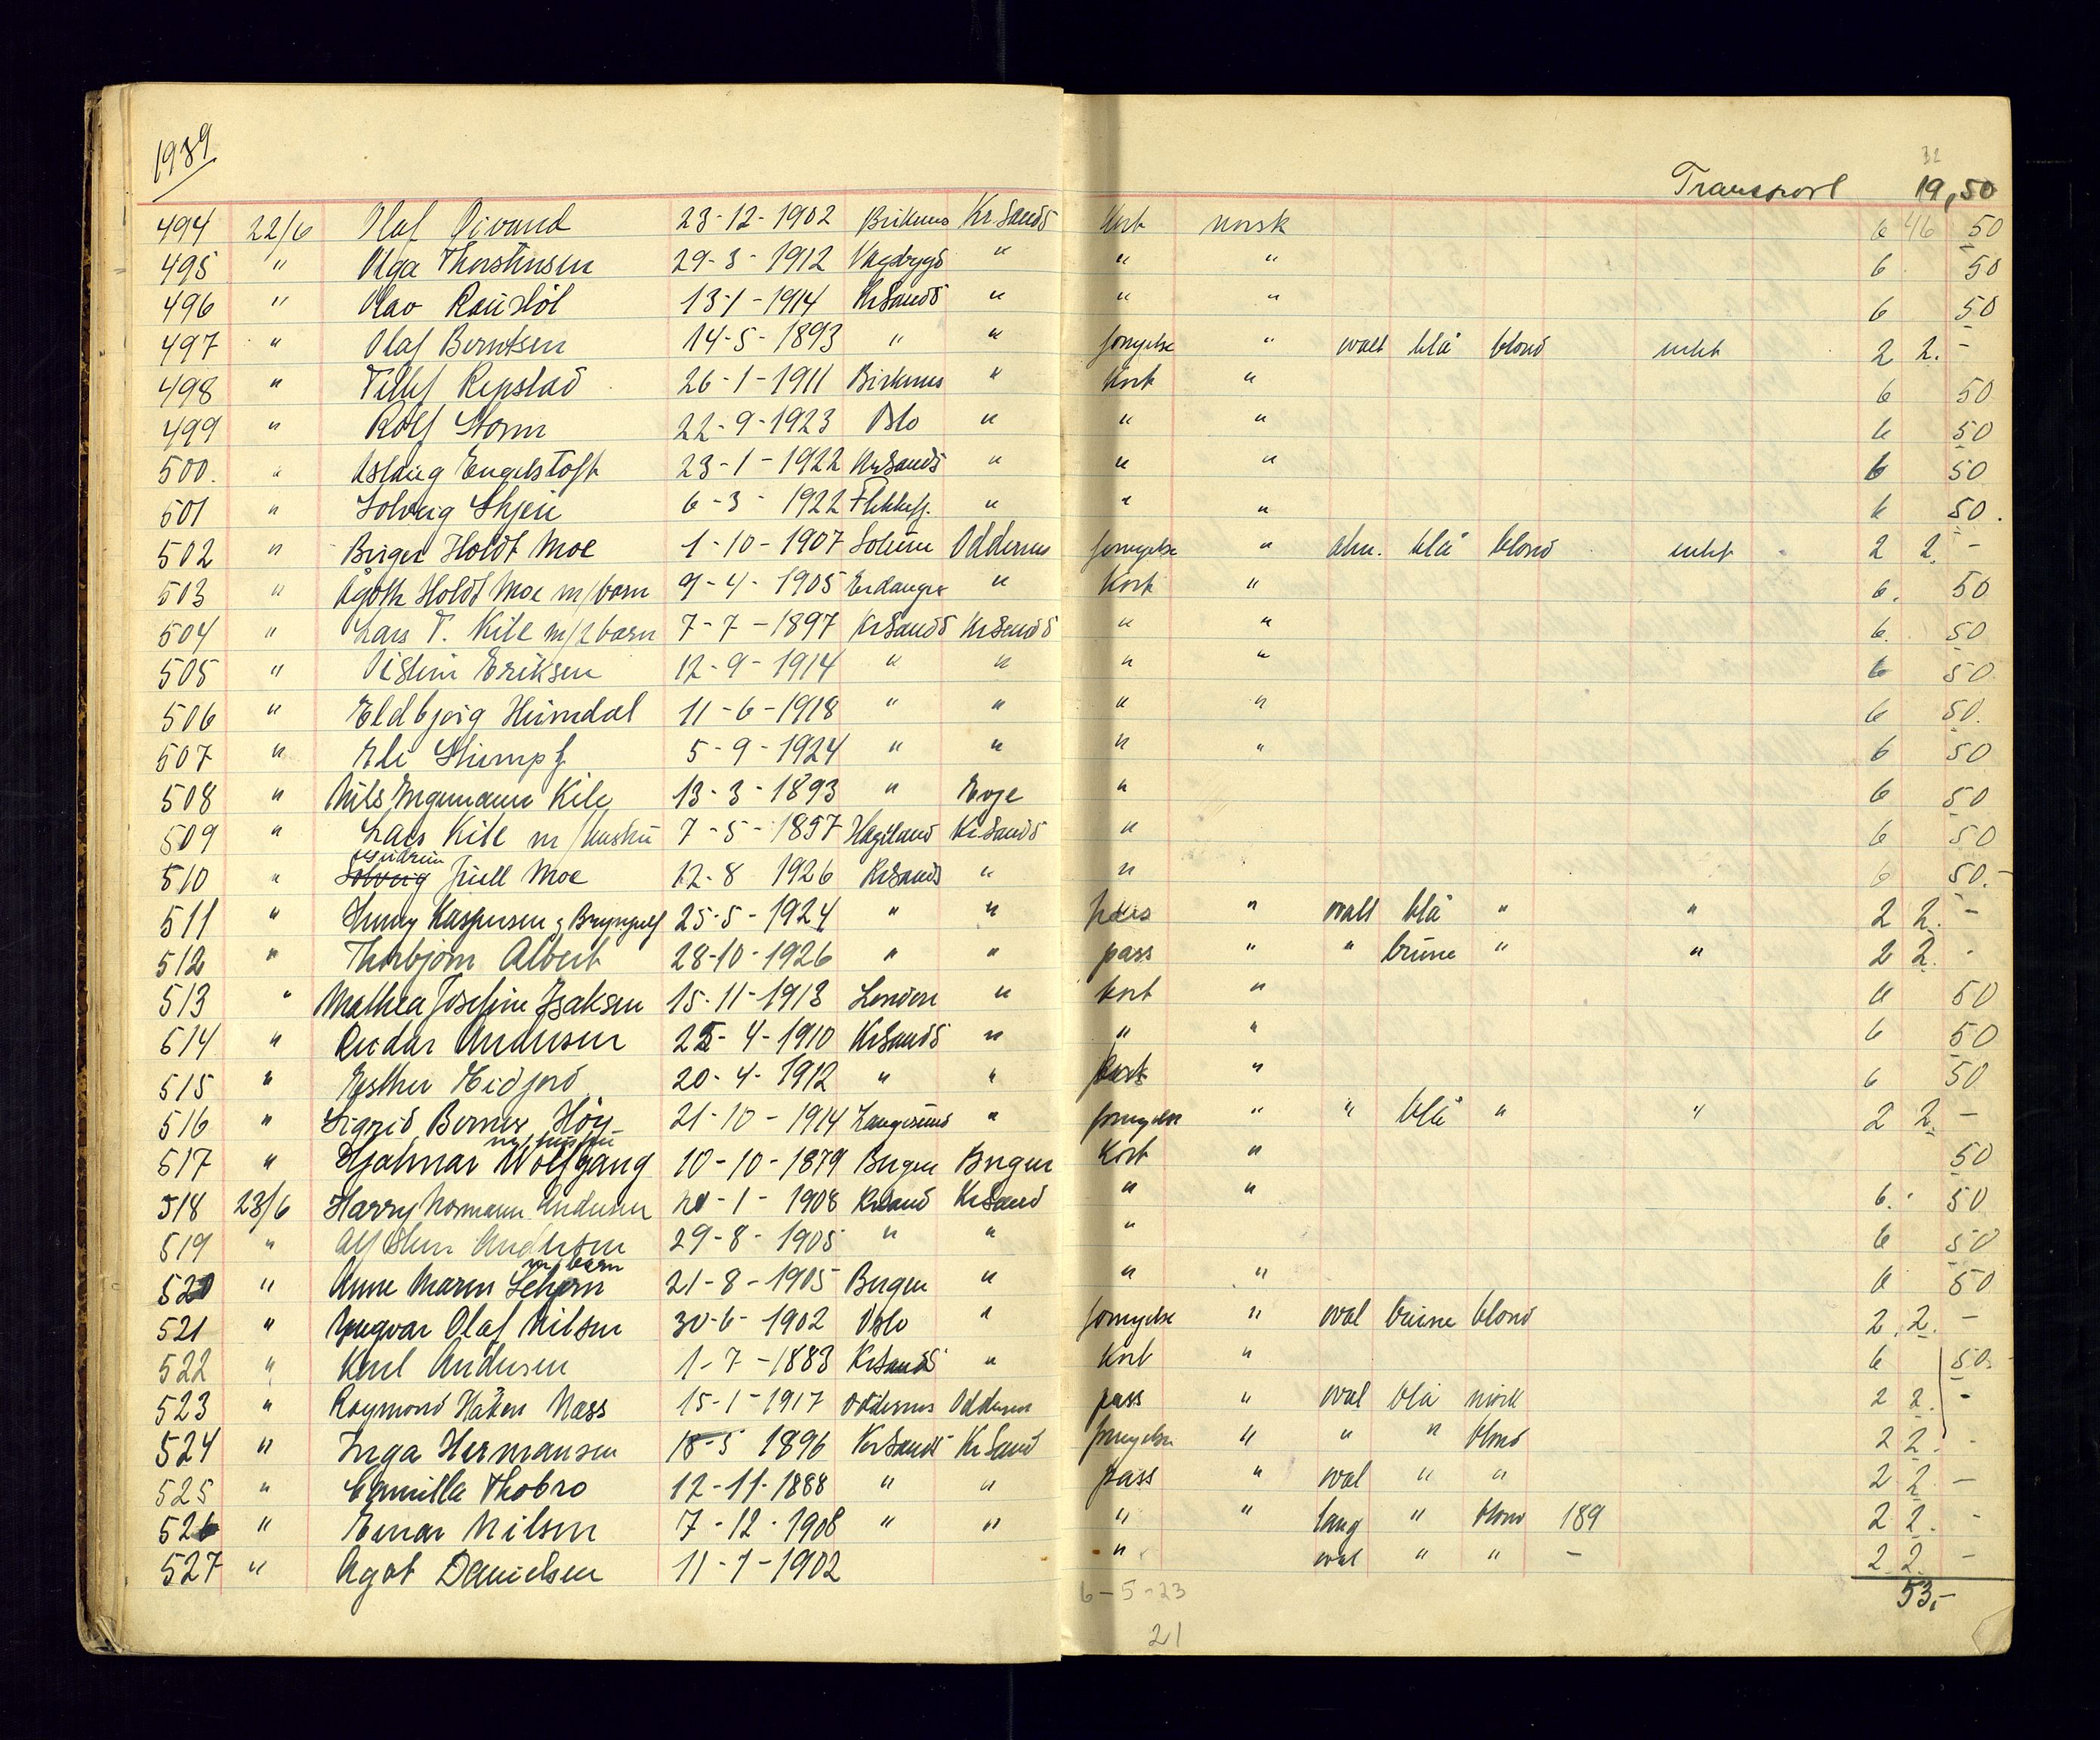 1939
Transport 19,50
32
494 22/6 Olaf Oivand 23-12-1902 Birkenes Kr Sands Kort norsk 6 46 50
495 " Olga Thorstensen 29-3-1912 Vagsbygd " " " 6 50
496 " Olav 13-1-1914 KrSands " " " 6 50
497 " Olaf Berntsen 14-5-1893 " " fornyelse " ovalt blå blond intet 2 2.-
498 " Tellef Repstad 26-1-1911 Birkenes " Kort " 6 50
499 " Rolf Storm 22-9-1923 Oslo " " " 6 50
500. " Aslaug Engelstoft 23-1-1922 KrSands " " " 6 50
501 " Solveig Skjeie 6-3-1922 Flekkefj. " " " 6 50.
502 " Birger Holdt Moe 1-10-1907 Solum Oddernes fornyelse " alm. blå blond intet 2 2.-
503 " Ågoth Holdt Moe m/barn 9-4-1905 " Kort " 6. 50
504 " Lars T. Kile m/2 barn 7-7-1897 KrSands KrSands " " 6. 50
505 " Oistein Eriksen 12-9-1914 " " " " 6 50
506 " Eldbjørg Heimdal 11-6-1918 " " " " 6 50.
507 " Eli Stumpf 5-9-1924 " " " " 6 50
508 " Nils Ingemann Kile 13-3-1893 " Evje " 6 50
509 " Lars Kile m/hustru 7-5-1897 Hægeland KrSands " 6 50
510 " Solveig Juell Moe 12-8 1926 KrSands " " 6 50.-
511 " Henny Kaspersen g Bryngulf 25-5-1924 " " pass " ovalt blå " " 2 2.-
512 " Thorbjørn Albert 28-10-1926 " " pass " " brune " " 2 2.-
513 " Mathea Josefine Isaksen 15-11-1913 London " kort " 6 50
514 " Reidar Andersen 25-4-1910 KrSands " " " 6 50
515 " Esther Eidjord 20-4-1912 " " Kort " 6 50
516 " Sigrid Berner Høy 21-10-1914 Langesund " fornyelse " " blå " " 2 2.-
m/hustru
517 " Hjalmar Wolfgang 10-10-1879 Bergen Bergen Kort " 50
518 23/6 Harry Normann Andersen 20-1-1908 Krsand KrSand " " 6. 50
519 " Alf Sten Andersen 29-8-1905 " " " 6 50
m/barn
520 " Anne Marie Lehern 21-8-1905 Bergen " " " 6 50
521 " Yngvar Olaf Nilsen 30-6-1902 Oslo " fornyelse " oval brune blond 2 2.-
522 " Karl Andersen 1-7-1883 KrSands " Kort " 6 50
523 " Raymond Håken Næss 15-1-1917 Oddernes Oddernes pass " oval blå mørk 2 2.-
524 " Inga Hermansen 18-5 1896 KrSands KrSand fornyelse " " " blond 2 2.-
525 " Camilla Thobro 12-11-1888 " " pass " oval " " 2 2-
526 " Einar Nilsen 7-12-1908 " " " " lang " blond 189 2 2.-
527 " Agot Danielsen 11-1-1902 " oval " " - 2 2-
53,-
6-5-23
21